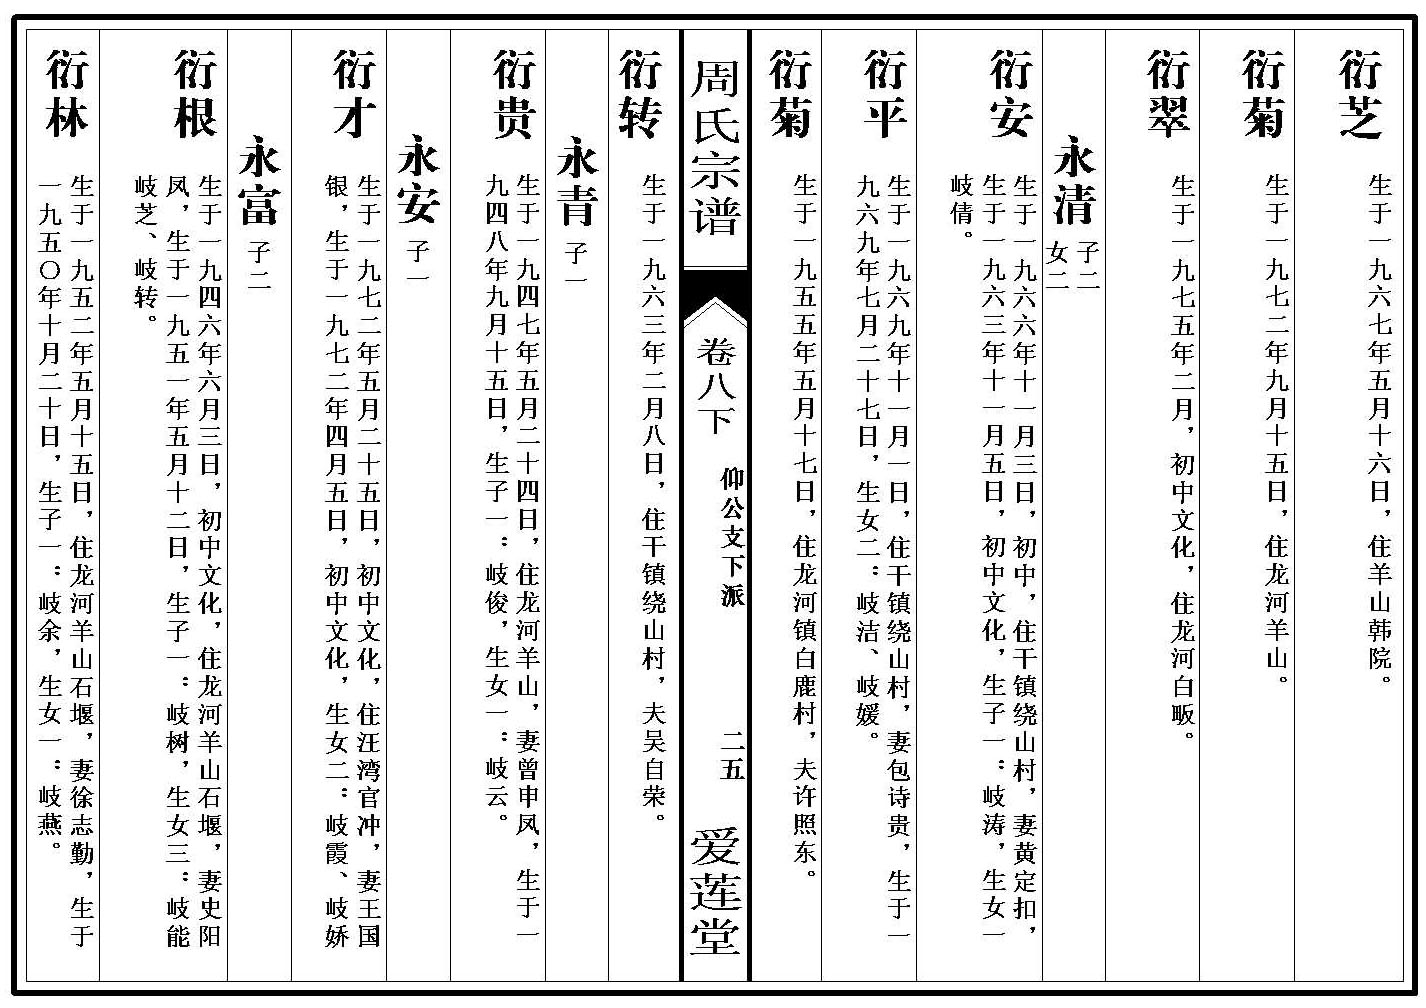 衍芝
生于一九六七年五月十六日，住羊山韩院。
衍菊
生于一九七二年九月十五日，住龙河羊山。
衍翠
生于一九七五年二月，初中文化，住龙河白畈。
永清
子二
女二
衍安
生于一九六六年十一月三日，初中，住干镇绕山村，妻黄定扣，
生于一九六三年十一月五日，初中文化，生子一：岐涛，生女一
岐倩。
衍平
生于一九六九年十一月一日，住干镇绕山村，妻包诗贵，生于一
九六九年七月二十七日，生女二：岐洁、岐媛。
衍菊
生于一九五五年五月十七日，住龙河镇白鹿村，夫许照东。
周氏宗谱
卷八下
仰公支下派
二五
爱莲堂
衍转
生于一九六三年二月八日，住干镇绕山村，夫吴自荣。
永青
子一
衍贵
生于一九四七年五月二十四日，住龙河羊山，妻曾申凤，生于一
九四八年九月十五日，生子一：岐俊，生女一：岐云。
永安
子一
衍才
生于一九七二年五月二十五日，初中文化，住汪湾官冲，妻王国
银，生于一九七二年四月五日，初中文化，生女二：岐霞、岐娇
永富
子二
衍根
生于一九四六年六月三日，初中文化，住龙河羊山石堰，妻史阳
凤，生于一九五一年五月十二日，生子一：岐树，生女三：岐能
岐芝、岐转。
衍林
生于一九五二年五月十五日，住龙河羊山石堰，妻徐志勤，生于
一九五〇年十月二十日，生子一：岐余，生女一：岐燕。